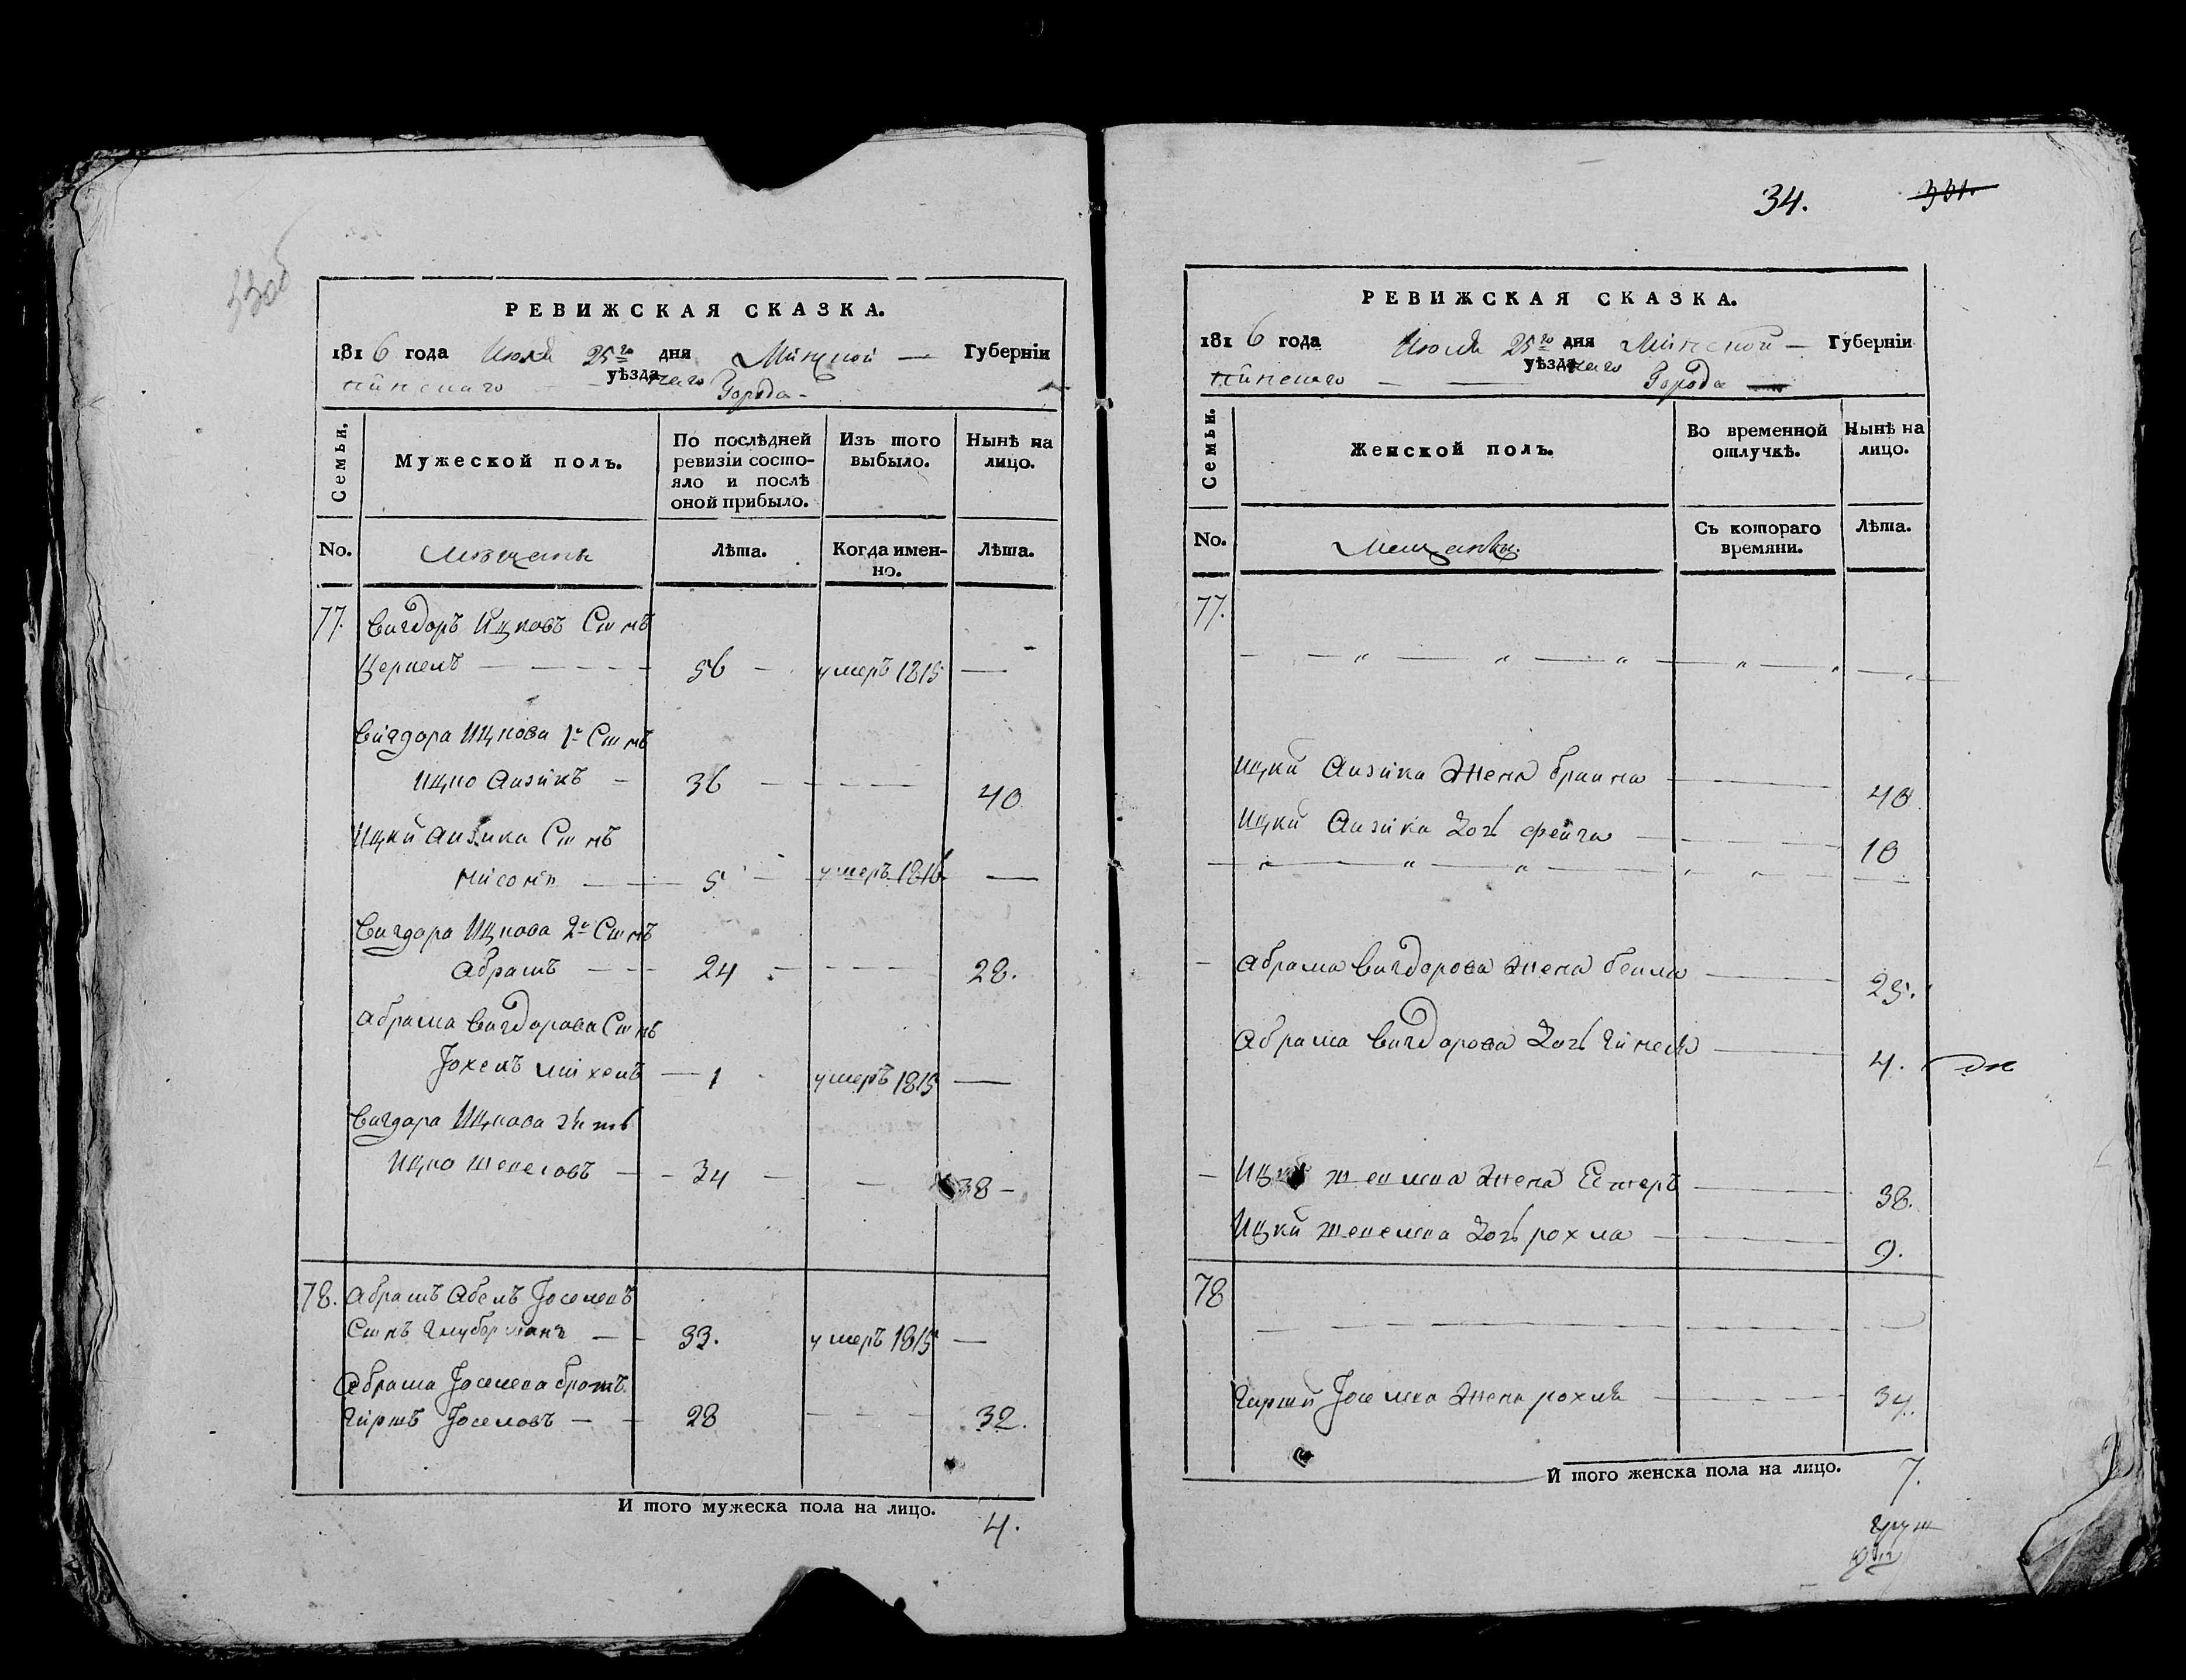 34.
РЕВИЖСКАЯ СКАЗКА.
1816 года Июля 25го дня Минской — Губернїи
пинскаго уѣзднаго Города
Семьи.
Мужеской полъ.
По послѣдней ревизїи состо-
яло и послѣ оной прибыло.
Изъ того выбыло.
Нынѣ на лицо.
No.
мѣщанъ
Лѣта.
Когда имен-
но.
Лѣта.
77. Вигдоръ Ицковъ Сынъ
56 — умеръ 1815 —
Вигдора Ицкова 1й Сынъ
Ицко Аизикъ — 36 — 40
Ицки Аизика Сынъ
Нисонъ — 5 — умеръ 1816 —
Вигдора Ицкова 2й Сынъ
Абрамъ — 24 — 28.
Абрама Вигдорова Сынъ
Іохель Михель — 1 умеръ 1815 —
Вигдора Ицкова зять
Ицко — 34 — 38 —
78. Абрамъ Абелъ Іоселевъ
Сынъ Глуберманъ — 33. умеръ 1815 —
Абрама Іоселева братъ
Гиршъ Іоселовъ — 28 — 32.
И того мужеска пола на лицо. 4.
РЕВИЖСКАЯ СКАЗКА.
1816 года Июля 25го дня Минской — Губернїи
пинскаго уѣзднаго Города
Семьи.
Женской полъ.
Во временной отлучкѣ.
Нынѣ на лицо.
No.
Мещанки.
Съ котораго времяни.
Лѣта.
77.
Ицки Аизика Жена Браина — 40
Ицки Аизика Дочь Фейга — 10
Абрама Вигдорова Жена Беила — 25.
Абрама Вигдорова Дочь Гинеся — 4.
Жена Естеръ — 38.
Ицки Дочь рохла — 9.
78
Гирши Жена рохля — 34.
И того женска пола на лицо. 7.